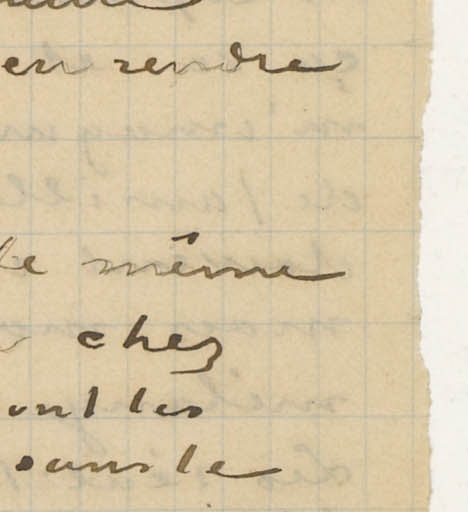 en rendre
le même
chez
ont les
sans le